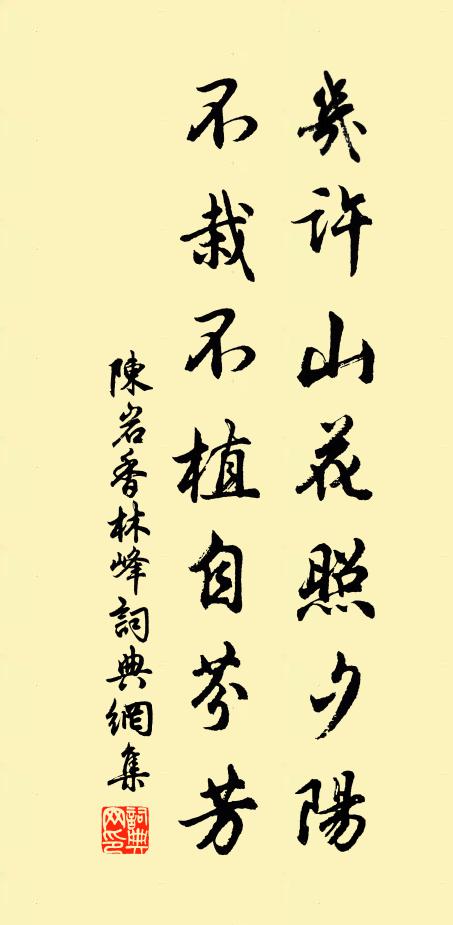 幾許山花照夕陽
不栽不植自芬芳
陳岩香林峰詞典網集
詞典网印